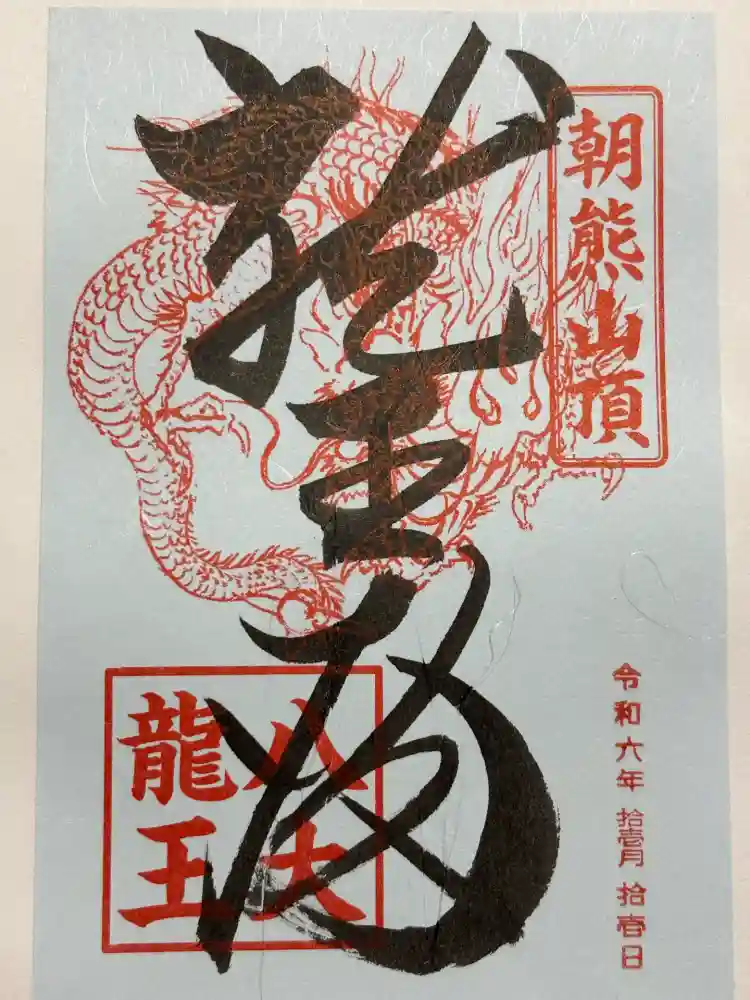 朝熊山頂
龍王殿
八大
龍王
令和六年 拾壱月 拾壱日